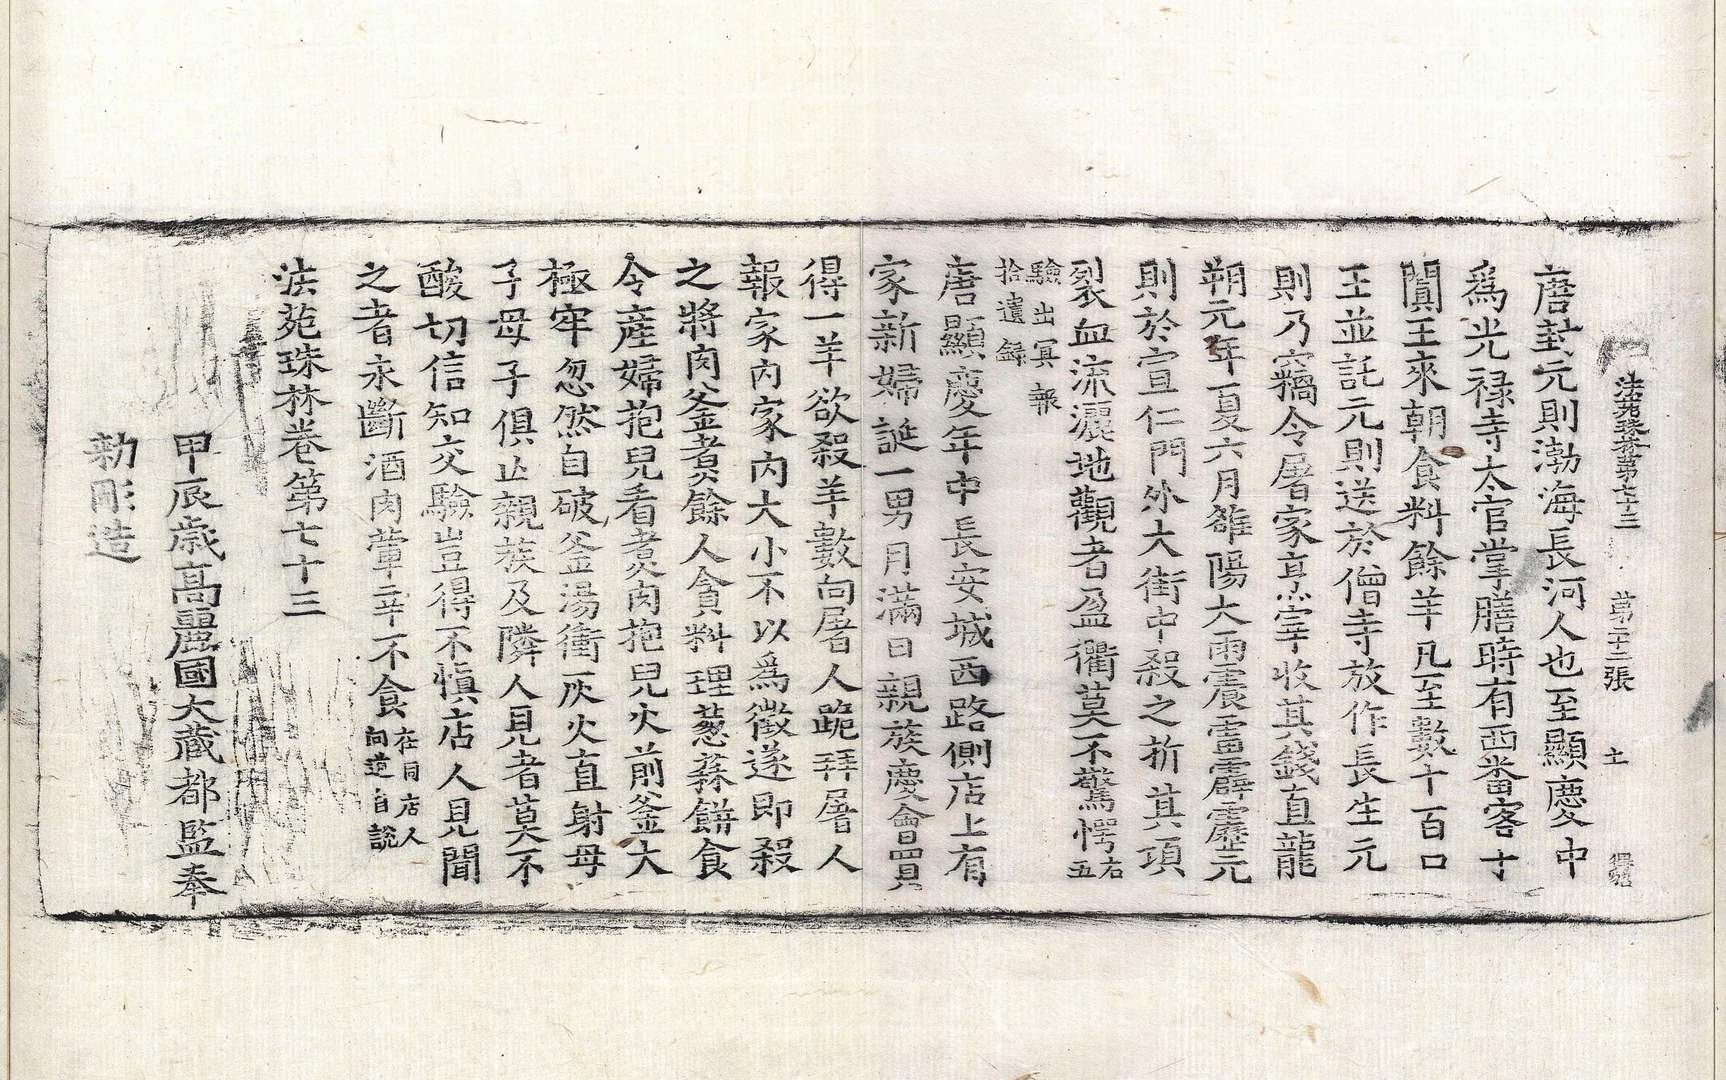 法苑珠林卷第七十三 第二十二張 土
唐封元則渤海長河人也至顯慶中
爲光禄寺太官掌膳時有西畨客于
闐王來朝食料餘羊凡至數十百口
王並託元則送於僧寺放作長生元
則乃竊令屠家烹宰收其錢直龍
朔元年夏六月雒陽大雨震雷霹靂元
則於宣仁門外大街中殺之折其項
裂血流灑地觀者盈衢莫不驚愕右五
驗出冥報
拾遺録
唐顯慶年中長安城西路側店上有
家新婦誕一男月滿日親族慶會買
得一羊欲殺羊數向屠人跪拜屠人
報家内家内大小不以爲徴遂即殺
之將肉釜煮餘人貪料理葱蒜餅食
令產婦抱兒看煮肉抱兒火前釜大
極牢忽然自破釜湯衝灰火直射母
子母子俱止親族及隣人見者莫不
酸切信知交驗豈得不慎店人見聞
之者永斷酒肉葷辛不食在同店人
向道自說
法苑珠林卷第七十三
甲辰歳高麗國大蔵都監奉
勑彫造